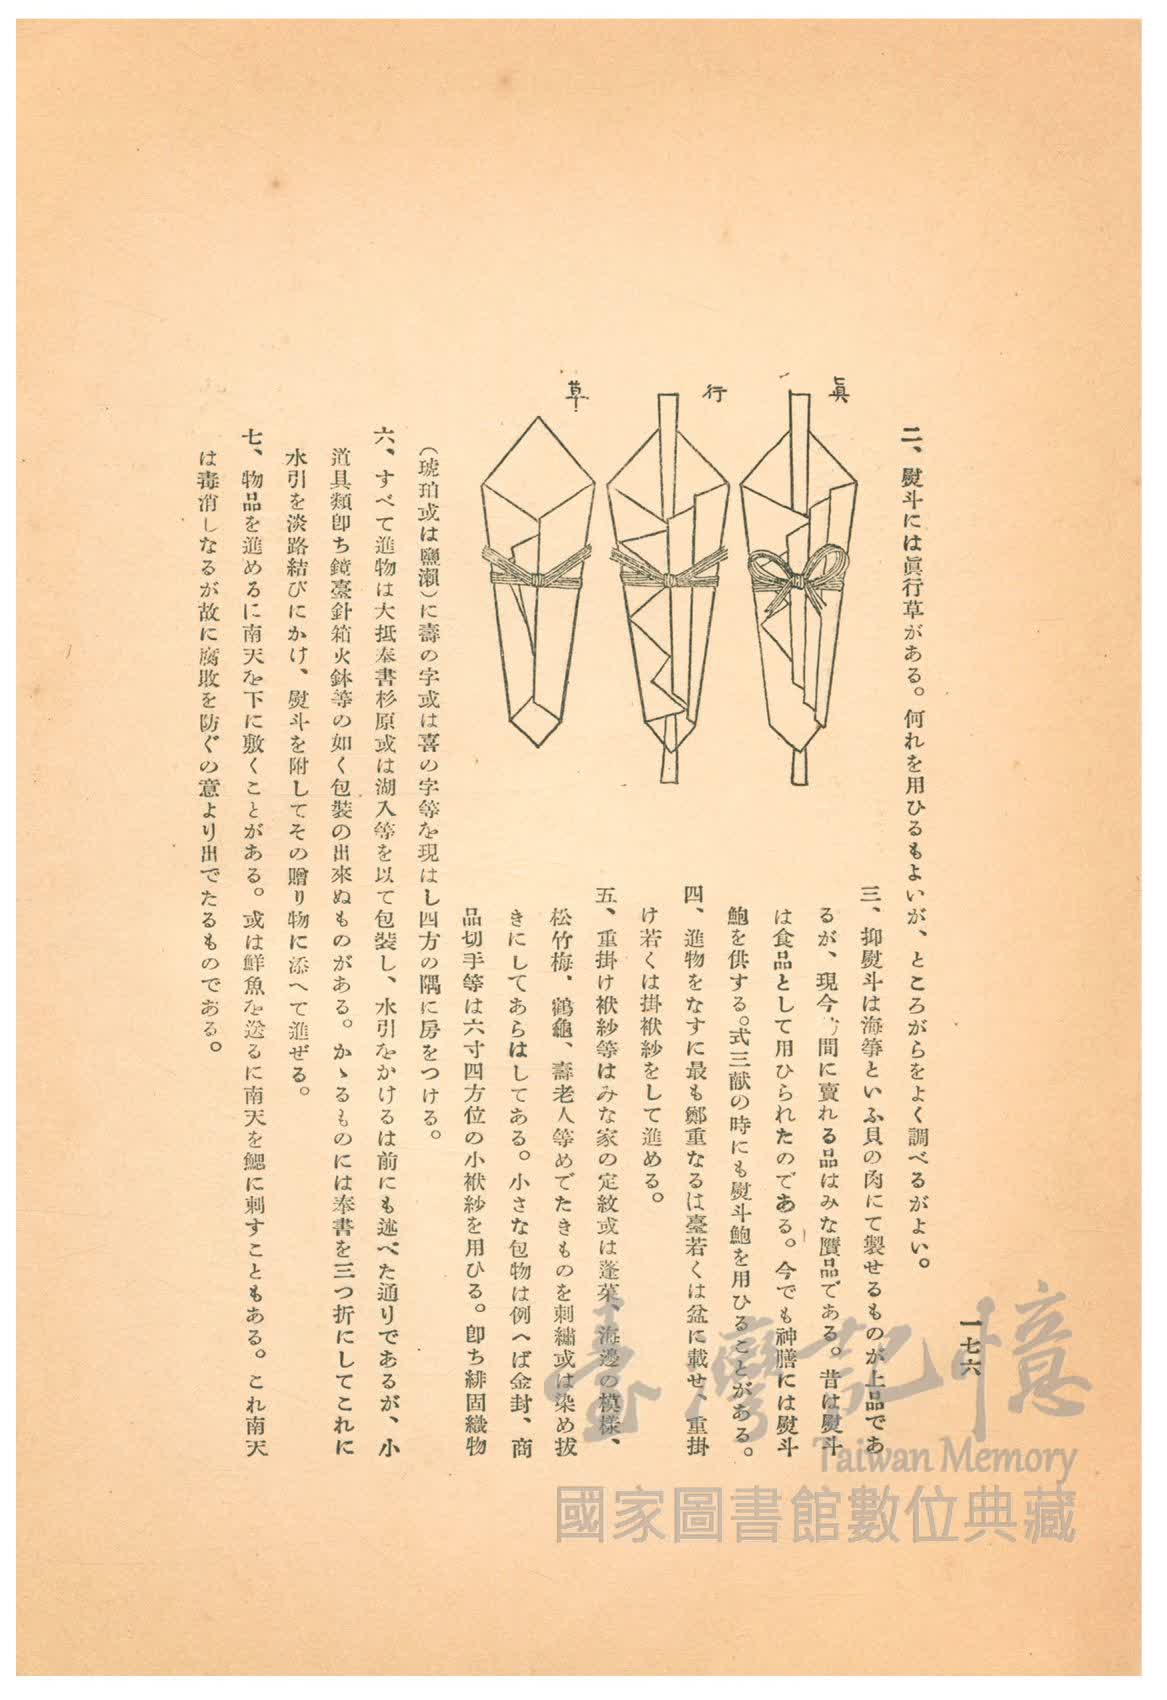 一七六
二、熨斗には眞行草がある。何れを用ひるもよいが、ところがらをよく調べるがよい。
眞
行
草
三、抑熨斗は海䈇といふ貝の肉にて製せるものが上品であ
るが、現今 間に賣れる品はみな贋品である。昔は熨斗
は食品として用ひられたのである。今でも神膳には熨斗
鮑を供する。式三献の時にも熨斗鮑を用ひることがある。
四、進物をなすに最も鄭重なるは臺若くは盆に載せ、重掛
け若くは掛袱紗をして進める。
五、重掛け袱紗等はみな家の定紋或は蓬萊、海邊の模樣、
松竹梅、鶴龜、壽老人等めでたきものを刺繡或は染め拔
きにしてあらはしてある。小さな包物は例へば金封、商
品切手等は六寸四方位の小袱紗を用ひる。卽ち緋固織物
(琥珀或は鹽瀬)に壽の字或は喜の字等を現はし四方の隅に房をつける。
六、すべて進物は大抵奉書杉原或は湖入等を以て包裝し、水引をかけるは前にも述べた通りであるが、小
道具類卽ち鏡臺針箱火鉢等の如く包裝の出來ぬものがある。かゝるものには奉書を三つ折にしてこれに
水引を淡路結びにかけ、熨斗を附してその贈り物に添へて進ぜる。
七、物品を進めるに南天を下に敷くことがある。或は鮮魚を送るに南天を鰓に刺すこともある。これ南天
は毒消しなるが故に腐敗を防ぐの意より出でたるものである。
臺灣記憶
Taiwan Memory
國家圖書館數位典藏